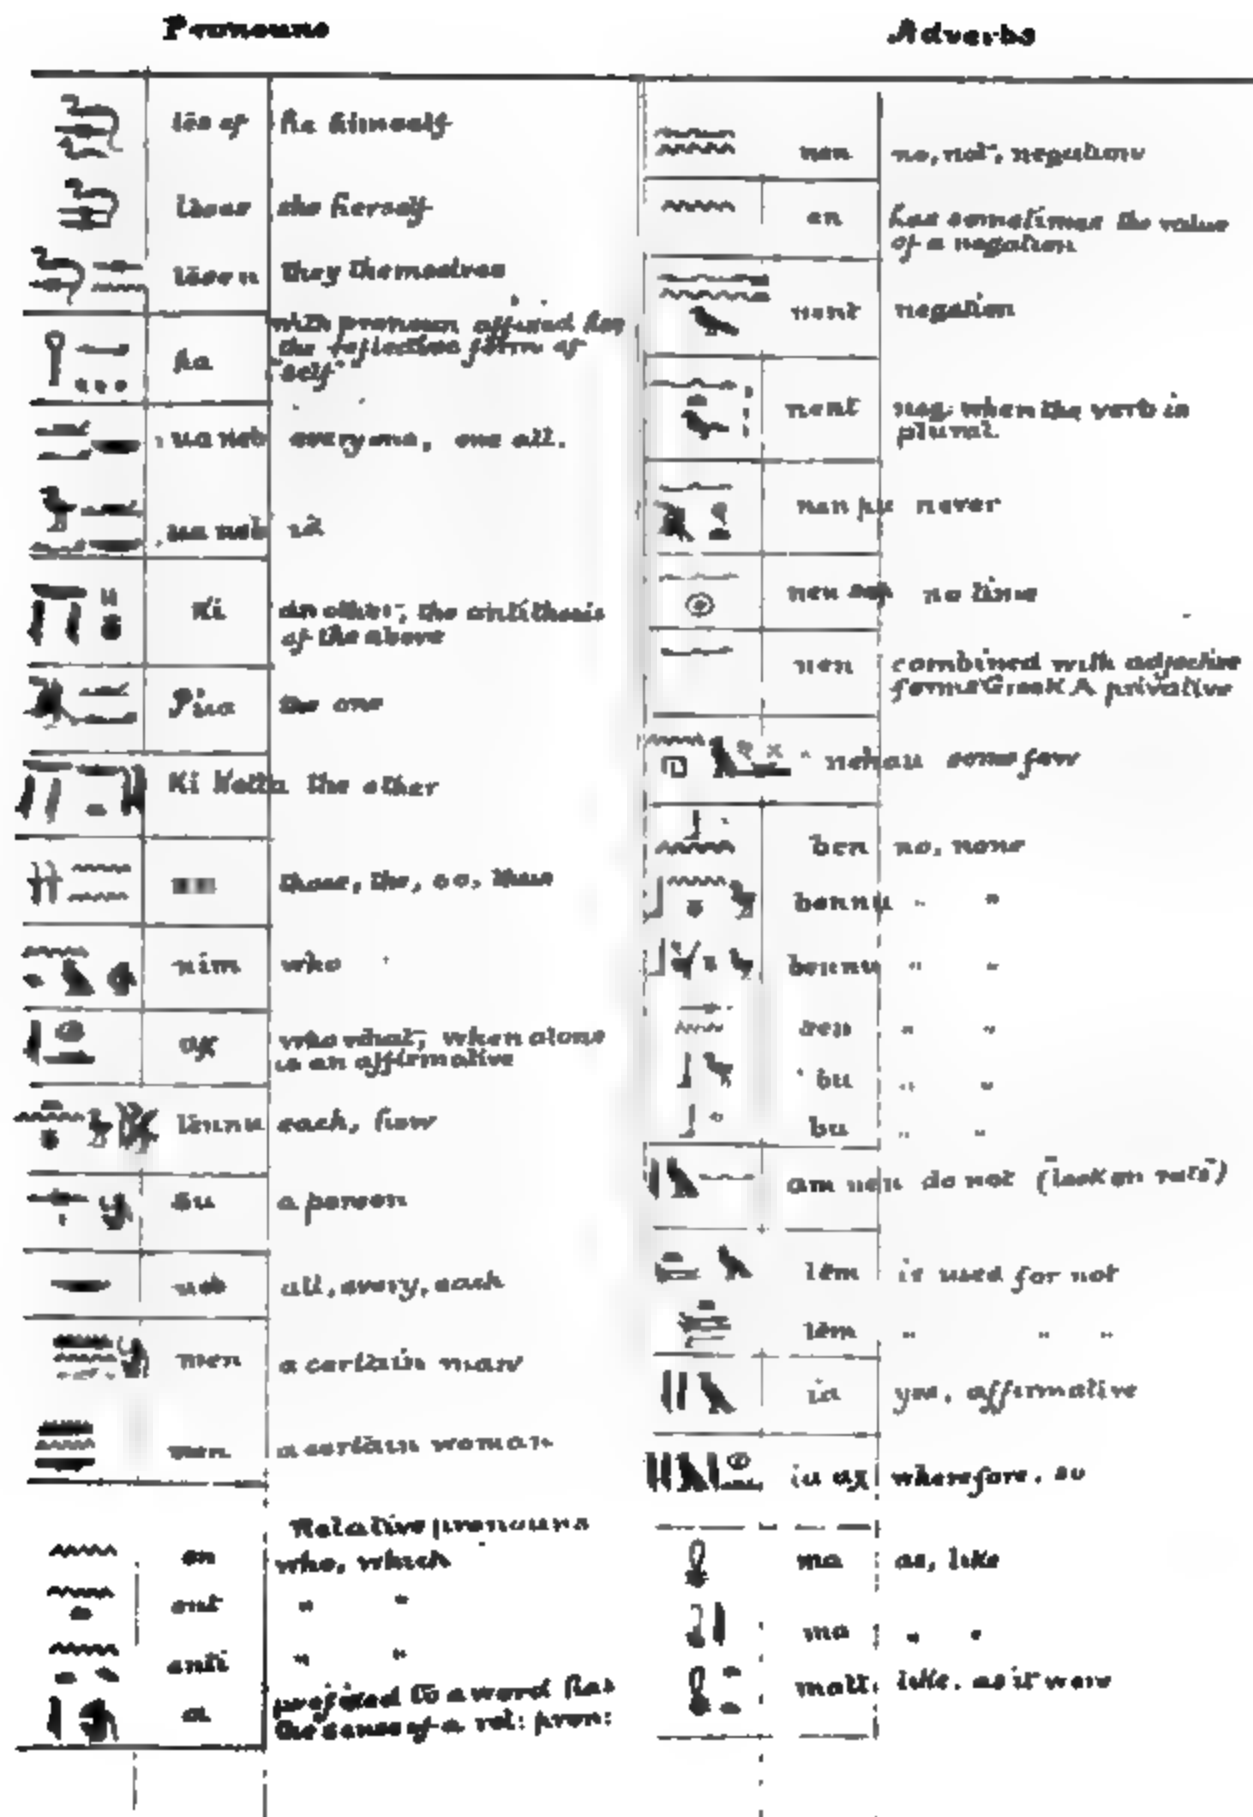 Pronouns
he himself
she herself
they themselves
with pronoun affixed has
the reflective form of
"self"
ua neb everyone, one all.
ua neb id
Ki another, the antithesis
of the above
the one
Ki the other
these, the,
nim who
who what, when alone
is an affirmative
each, how
su a person
neb all, every, each
men a certain man
men a certain woman
Relative pronouns
en who, which
ent " "
enti " "
a prefixed to a word has
the sense of a rel: pron:
Adverbs
nen no, not, negation
an has sometimes the value
of a negation
nent negation
nent neg. when the verb is
plural
nan pu never
nen sep no time
nen combined with adjective
forms Greek A privative
nehau some few
ben no, none
bennu " "
bennu " "
" "
bu " "
bu " "
am nen do not
tem is used for not
tem " " "
ia yes, affirmative
ia ax wherefore, so
ma as, like
ma " "
mati like, as it were